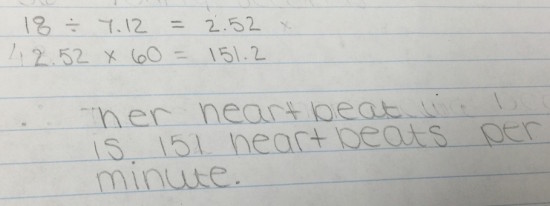 18 ÷ 7.12 = 2.52
2.52 x 60 = 151.2
her heartbeat
is 151 heartbeats per
minute.